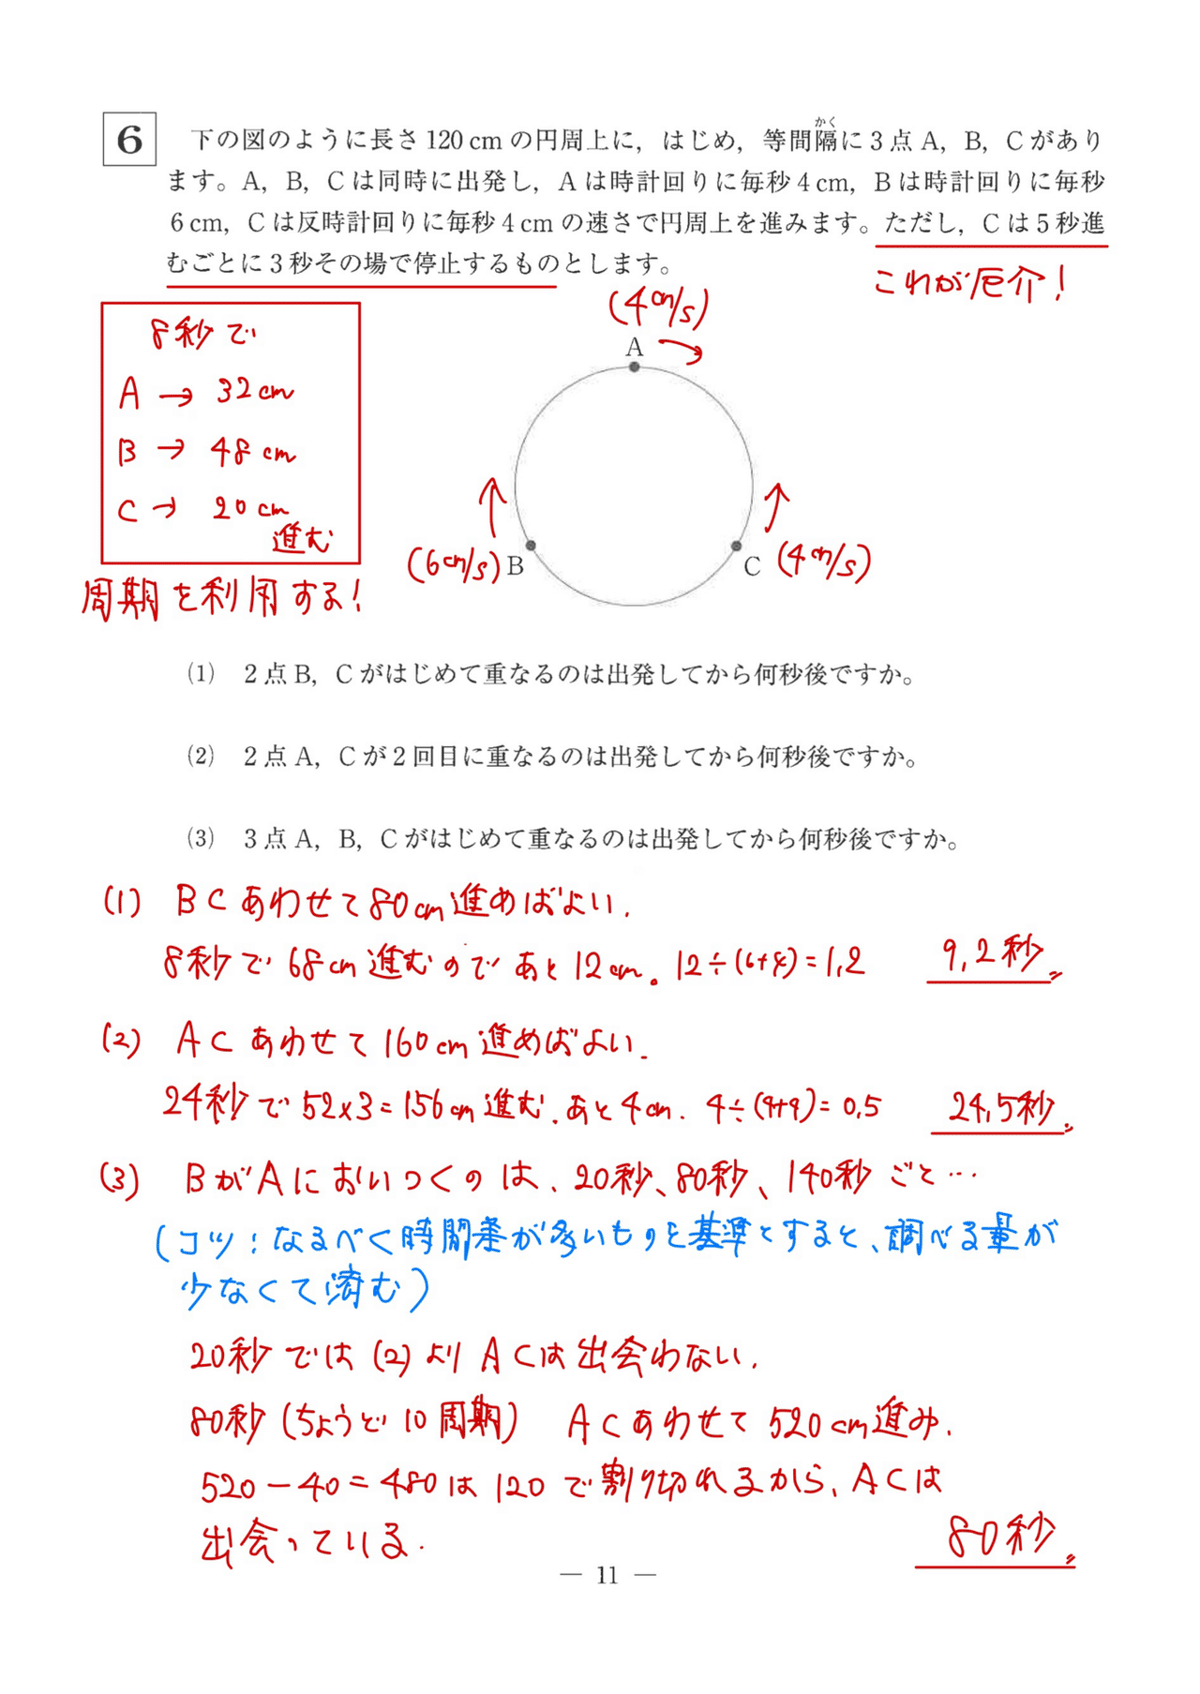 6 下の図のように長さ120 cmの円周上に，はじめ，等間隔に3点A，B，Cがあり
かく
ます。A，B，Cは同時に出発し，Aは時計回りに毎秒4 cm，Bは時計回りに毎秒
6 cm，Cは反時計回りに毎秒4 cmの速さで円周上を進みます。ただし，Cは5秒進
むごとに3秒その場で停止するものとします。
これが厄介！
8秒で
A → 32cm
B → 48cm
C → 20cm
進む
周期を利用する！
(4cm/s)
A
(6cm/s) B
C (4cm/s)
(1) 2点B，Cがはじめて重なるのは出発してから何秒後ですか。
(2) 2点A，Cが2回目に重なるのは出発してから何秒後ですか。
(3) 3点A，B，Cがはじめて重なるのは出発してから何秒後ですか。
(1) BCあわせて80cm進めばよい.
8秒で68cm進むのであと12cm。12÷(6+4)=1,2 9,2秒
(2) ACあわせて160cm進めばよい.
24秒で52×3=156cm進む.あと4cm. 4÷(4+4)=0.5 24,5秒
(3) BがAにおいつくのは、20秒、80秒、140秒ごと…
(コツ：なるべく時間差が多いものを基準とすると、調べる量が
少なくて済む)
20秒では(2)よりACは出会わない.
80秒(ちょうど10周期) ACあわせて520cm進み.
520-40=480は120で割り切れるから、ACは
出会っている. 80秒
— 11 —